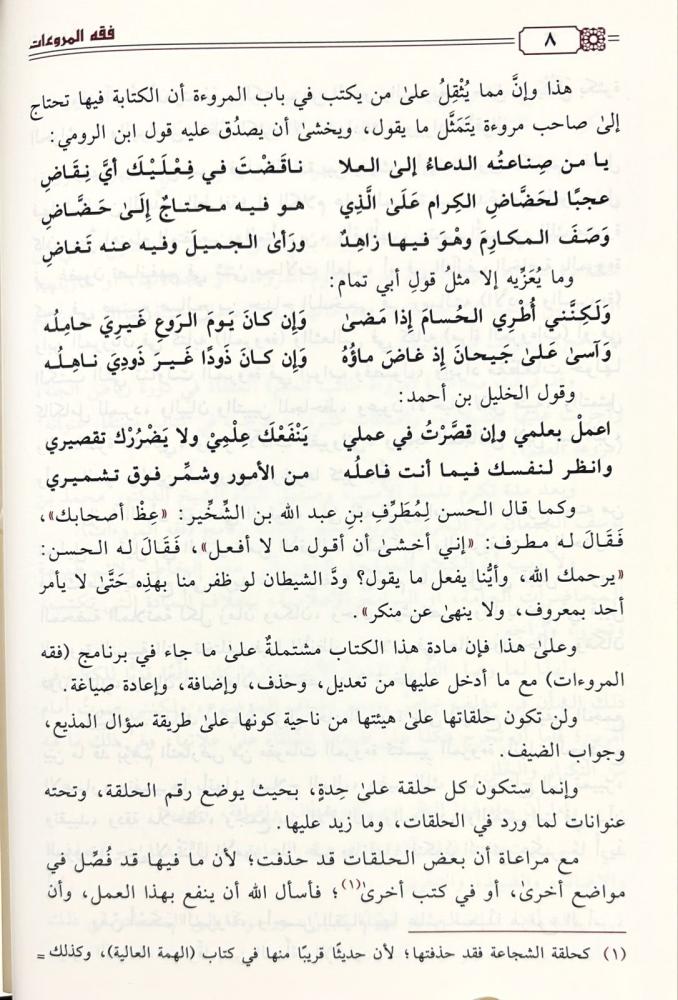 فقه المروءات
٨
هذا وإنَّ مما يُثْقِلُ علىٰ من يكتب في باب المروءة أن الكتابة فيها تحتاج
إلىٰ صاحب مروءة يَتَمَثَّل ما يقول، ويخشىٰ أن يصدُق عليه قول ابن الرومي:
يا من صِناعتُه الدعاءُ إلىٰ العلا ناقَضْتَ في فِعْلَيْكَ أيَّ نِقَاضِ
عجبًا لحَضَّاضِ الكِرام عَلَىٰ الَّذِي هو فيه محتاجٌ إِلَىٰ حَضَّاضِ
وَصَفَ المكارِمَ وهْوَ فيها زاهِدٌ ورَأىٰ الجميلَ وفيه عنه تَغاضِ
وما يُعَزِّيه إلا مثلُ قولِ أبي تمام:
وَلَكِنَّني أُطْرِي الحُسامَ إِذا مَضىٰ وَإِن كانَ يَومَ الرَوعِ غَيرِيَ حامِلُه
وَآسىٰ عَلىٰ جَيحانَ إِذ غاضَ ماؤُهُ وَإِن كانَ ذَودًا غَيرَ ذَودِيَ ناهِلُه
وقول الخليل بن أحمد:
اعملْ بعلمي وإن قصَّرْتُ في عملي يَنْفَعْكَ عِلْمِيْ ولا يَضْرُرْك تقصيري
وانظر لنفسك فيما أنت فاعلُه من الأمور وشمِّر فوق تشميري
وكما قال الحسن لِمُطَرِّفِ بنِ عبد الله بن الشِّخِّير: «عِظْ أصحابك»،
فَقَالَ له مطرف: «إني أخشىٰ أن أقول ما لا أفعل»، فَقَالَ له الحسن:
«يرحمك الله، وأيُّنا يفعل ما يقول؟ ودَّ الشيطان لو ظفر منا بهذِه حَتَّىٰ لا يأمر
أحد بمعروف، ولا ينهىٰ عن منكر».
وعلىٰ هذا فإن مادة هذا الكتاب مشتملةٌ علىٰ ما جاء في برنامج (فقه
المروءات) مع ما أدخل عليها من تعديل، وحذف، وإضافة، وإعادة صياغة.
ولن تكون حلقاتها علىٰ هيئتها من ناحية كونها علىٰ طريقة سؤال المذيع،
وجواب الضيف.
وإنما ستكون كل حلقة علىٰ حِدةٍ، بحيث يوضع رقم الحلقة، وتحته
عنوانات لما ورد في الحلقات، وما زيد عليها.
مع مراعاة أن بعض الحلقات قد حذفت؛ لأن ما فيها قد فُصِّل في
مواضع أخرىٰ، أو في كتب أخرىٰ(١)؛ فأسأل الله أن ينفع بهذا العمل، وأن
(١) كحلقة الشجاعة فقد حذفتها؛ لأن حديثًا قريبًا منها في كتاب (الهمة العالية)، وكذلك =